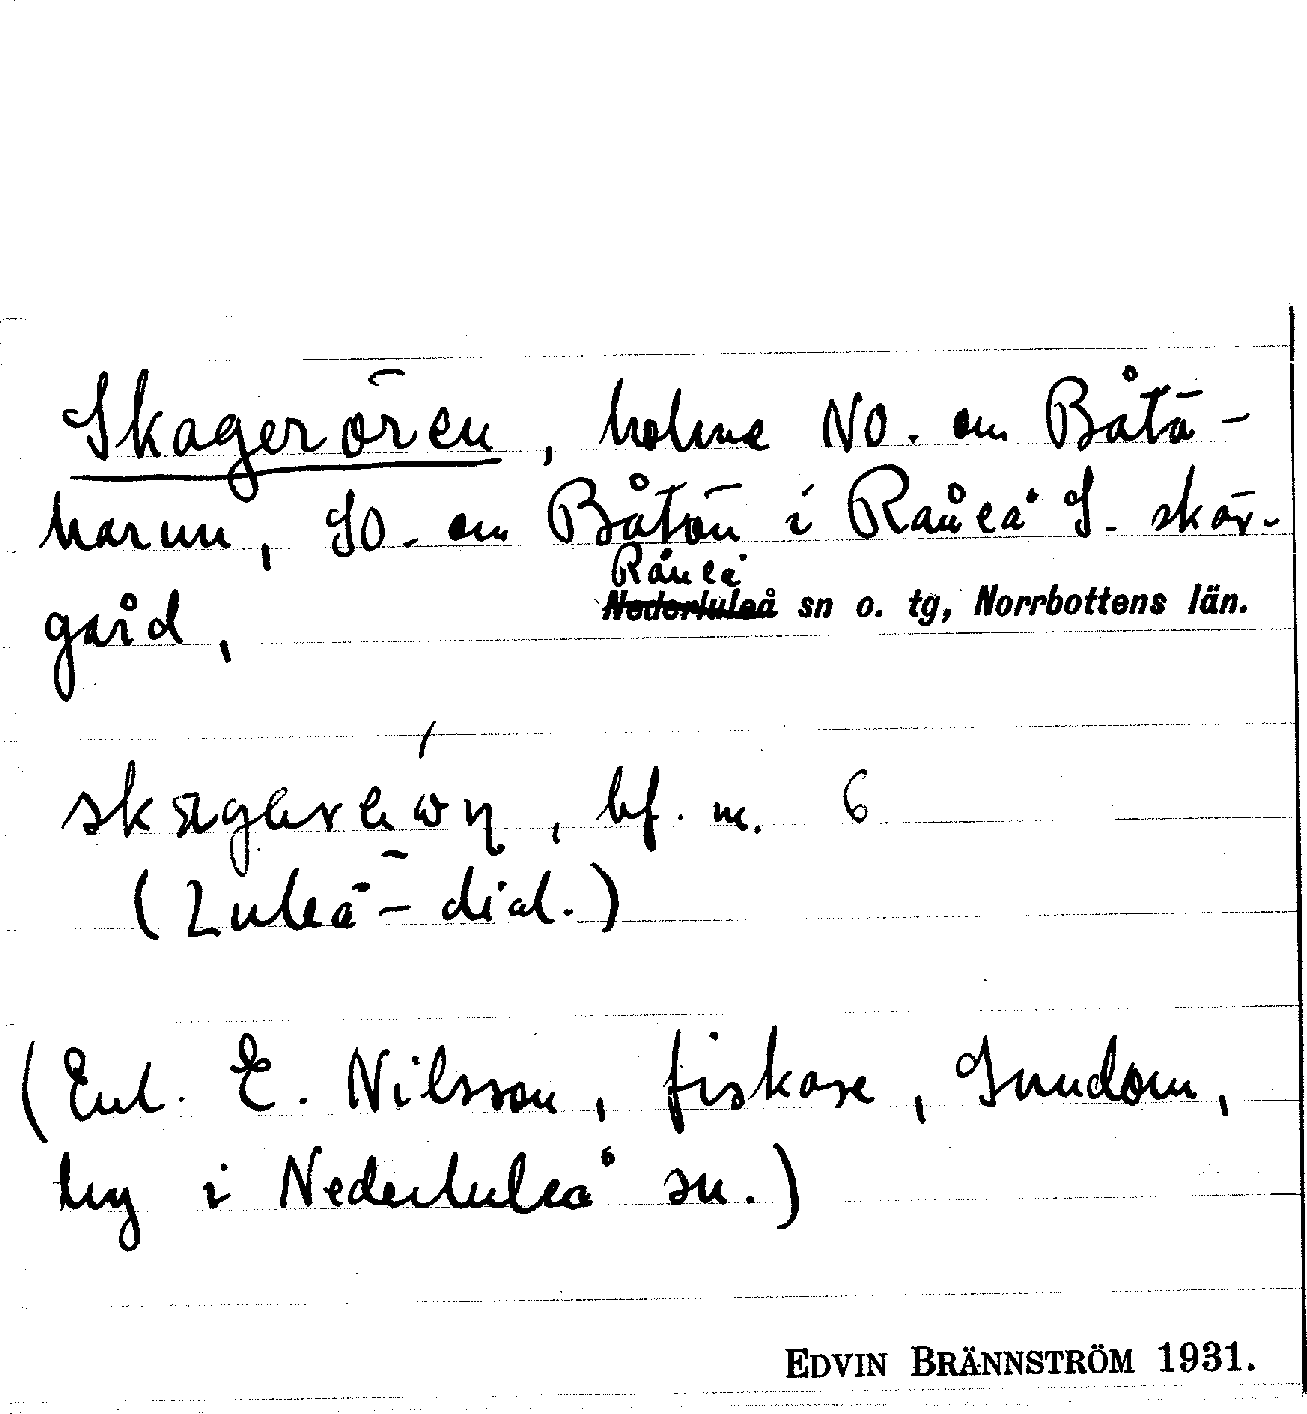 Skagerören, holme NO. om Båtö-
harun, SO. om Båtön i Råneå S. skär-
gård,
Råneå
Nederluleå sn o. tg, Norrbottens län.
bf. m. 6
(Luleå-dial.)
(Enl. E. Nilsson, fiskare, Sundom,
by i Nederluleå sn.)
EDVIN BRÄNNSTRÖM 1931.